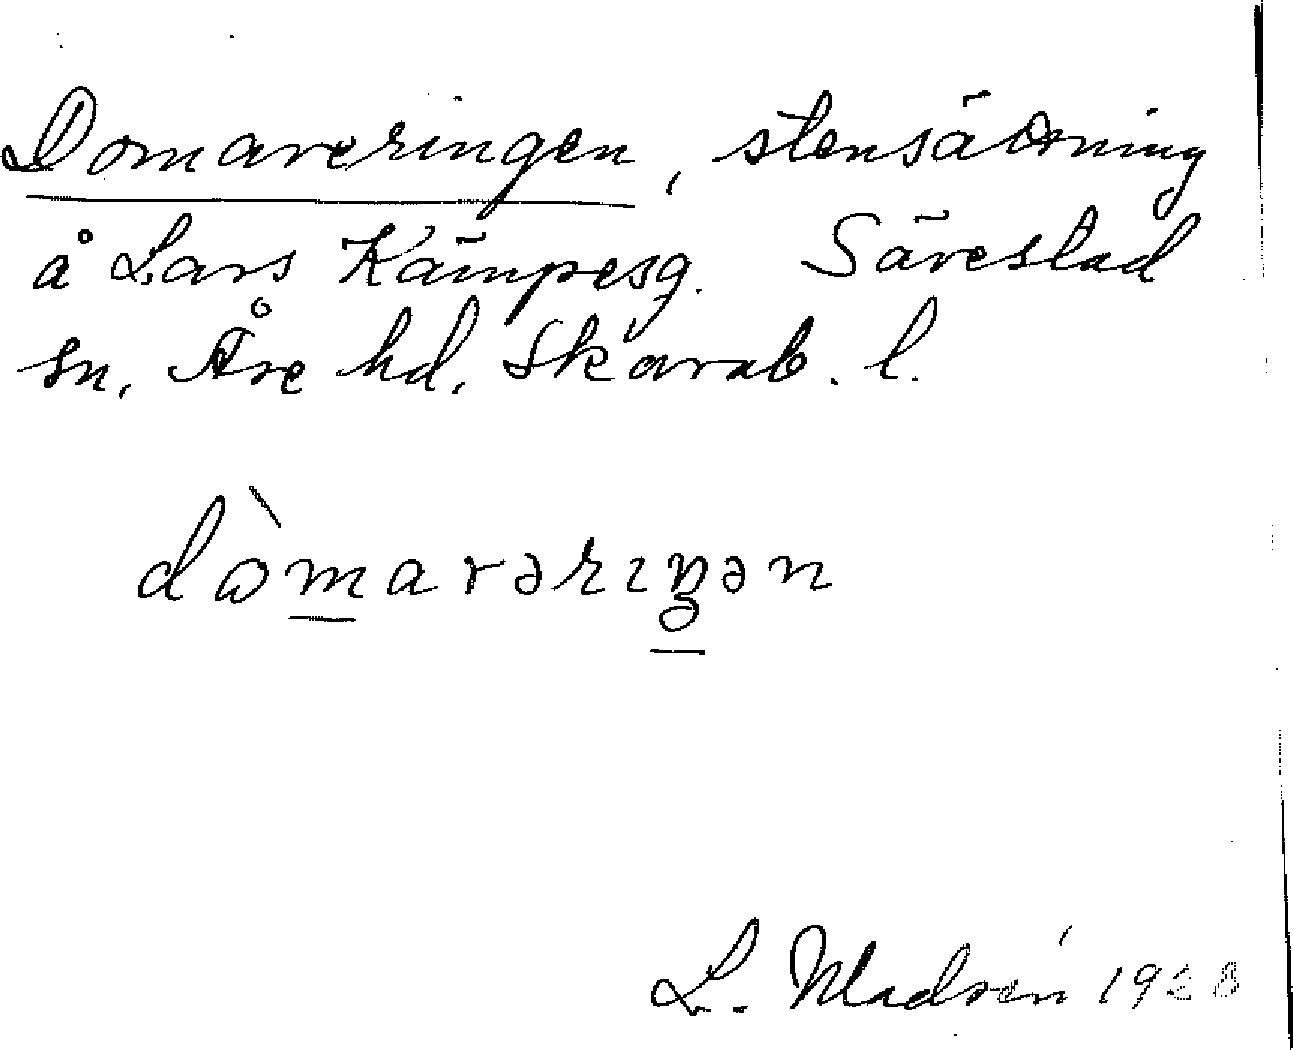 Domareringen, stensättning
å Lars Kämpesg. Särestad
sn, Åse hd, Skarab. l.
dòmarərıŋən
L.